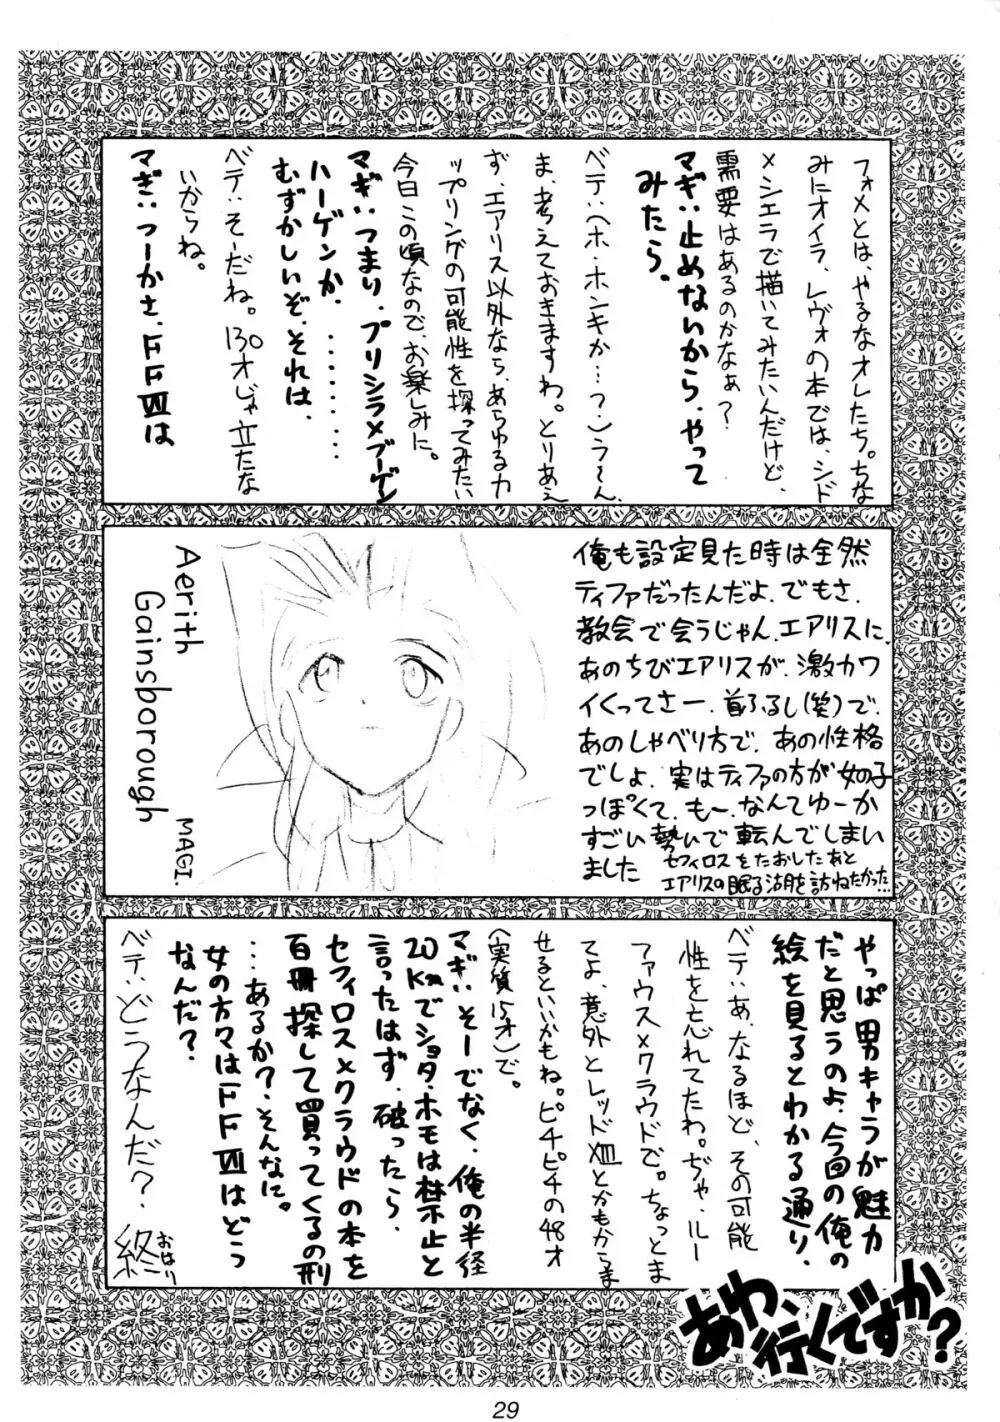 フォメとは、やるなオレたち。ちな
みにオイラ、レヴォの本では、シド
×シエラで描いてみたいんだけど、
需要はあるのかなぁ?
マギ:止めないから、やって
みたら。
ベテ:(ホ・ホンキか…?)う〜ん、
ま、考えておきますわ。とりあえ
ず、エアリス以外なら、あらゆるカ
ップリングの可能性を探ってみたい
今日この頃なので、お楽しみに。
マギ:つまり、プリシラ×ブーゲン
ハーゲンか、………
むずかしいぞ、それは、
ベテ:そーだね。130才じゃ立たな
いからね。
マギ:つーかさ、FFⅦは
Aerith
Gainsborough
MAGI.
俺も設定見た時は全然
ティファだったんだよ、でもさ、
教会で会うじゃん、エアリスに、
あのちびエアリスが、激カワ
イくってさー、首ふるし(笑)で、
あのしゃべり方で、あの性格
でしょ、実はティファの方が女の子
っぽくて、もー、なんてゆーか
すごい勢いで転んでしまい
ました
セフィロスをたおしたあと
エアリスの眠る湖を訪ねたかった…
やっぱ男キャラが魅力
だと思うのよ、今回の俺の
絵を見るとわかる通り、
ベテ:あ、なるほど、その可能
性を忘れてたわ。ぢゃ、ルー
ファウス×クラウドで。ちょっとま
てよ、意外とレッドXIIIとかもからま
せるといいかもね。ピチピチの48才
(実質15才)で。
マギ:そーでなく、俺の半径
20Kmでショタ・ホモは禁止と
言ったはず、破ったら、
セフィロス×クラウドの本を
百冊探して買ってくるの刑
…あるか?、そんなに。
女の方々はFFⅦはどう
なんだ?
ベテ:どうなんだ?
終
おはり
あわ、行くですか?
29